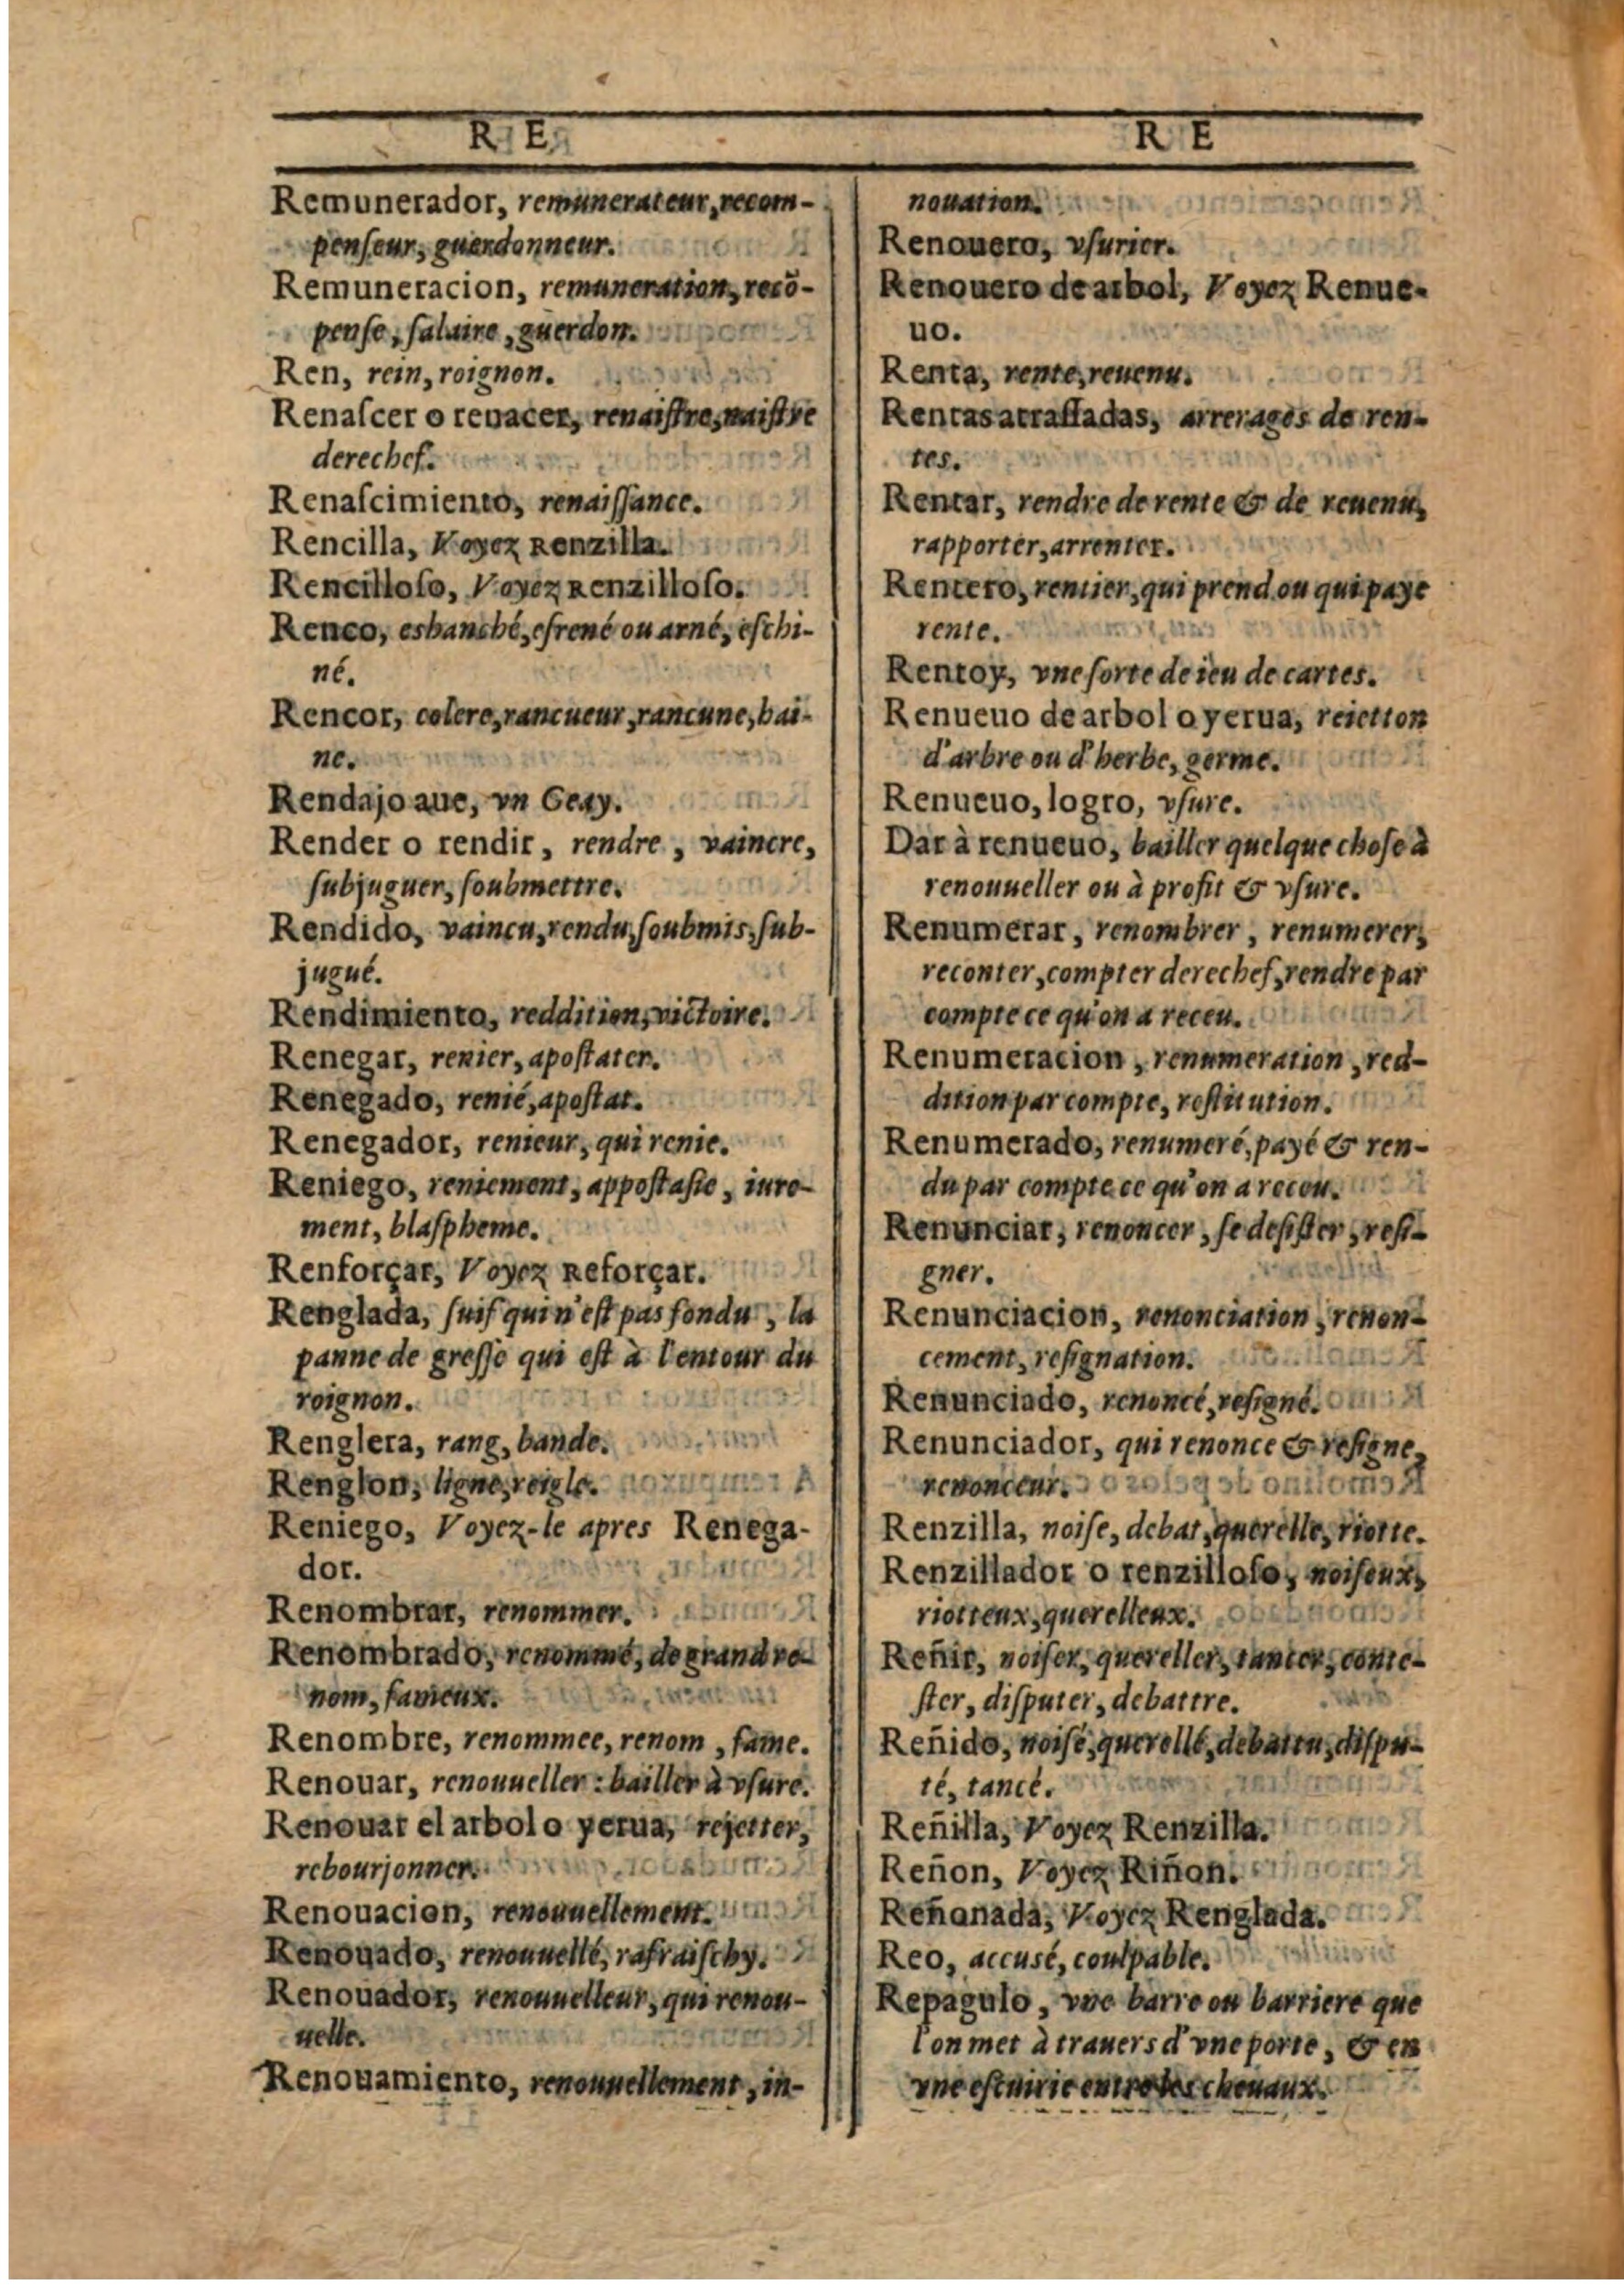 R E
Remunerador, remunerateur, recom-
penſeur, guerdonneur.
Remuneracion, remuneration, recõ-
penſe, ſalaire, guerdon.
Ren, rein, roignon.
Renaſcer o renacer, renaiſtre, naiſtre
derechef.
Renaſcimiento, renaiſſance.
Rencilla, Voyez Renzilla.
Rencilloſo, Voyez Renzilloſo.
Renco, eshanché, efrené ou arné, eſchi-
né.
Rencor, colere, rancueur, rancune, hai-
ne.
Rendajo aue, vn Geay.
Render o rendir, rendre, vaincre,
ſubjuguer, ſoubmettre.
Rendido, vaincu, rendu, ſoubmis, ſub-
jugué.
Rendimiento, reddition, victoire.
Renegar, renier, apoſtater.
Renegado, renié, apoſtat.
Renegador, renieur, qui renie.
Reniego, reniement, appoſtaſie, iure-
ment, blaſpheme.
Renforçar, Voyez Reforçar.
Renglada, ſuif qui n'eſt pas fondu, la
panne de greſſe qui eſt à l'entour du
roignon.
Renglera, rang, bande.
Renglon, ligne, reigle.
Reniego, Voyez-le apres Renega-
dor.
Renombrar, renommer.
Renombrado, renommé, de grand re-
nom, fameux.
Renombre, renommee, renom, fame.
Renouar, renouueller : bailler à vſure.
Renouar el arbol o yerua, rejetter,
rebourjonner.
Renouacion, renouuellement.
Renouado, renouuellé, rafraiſchy.
Renouador, renouuelleur, qui renou-
uelle.
Renouamiento, renouuellement, in-
R E
nouation.
Renouero, vſurier.
Renouero de arbol, Voyez Renue-
uo.
Renta, rente, reuenu.
Rentas atraſſadas, arrerages de ren-
tes.
Rentar, rendre de rente & de reuenu,
rapporter, arrenter.
Rentero, rentier, qui prend ou qui paye
rente.
Rentoy, vne ſorte de ieu de cartes.
Renueuo de arbol o yerua, reietton
d'arbre ou d'herbe, germe.
Renueuo, logro, vſure.
Dar à renueuo, bailler quelque choſe à
renouueller ou à profit & vſure.
Renumerar, renombrer, renumerer,
reconter, compter derechef, rendre par
compte ce qu'on a receu.
Renumeracion, renumeration, red-
dition par compte, reſtitution.
Renumerado, renumeré, payé & ren-
du par compte ce qu'on a receu.
Renunciar, renoncer, ſe deſiſter, reſi-
gner.
Renunciacion, renonciation, renon-
cement, reſignation.
Renunciado, renoncé, reſigné.
Renunciador, qui renonce & reſigne,
renonceur.
Renzilla, noiſe, debat, querelle, riotte.
Renzillador o renzilloſo, noiſeux,
riotteux, querelleux.
Reñir, noiſer, quereller, tancer, conte-
ſter, diſputer, debattre.
Reñido, noiſé, querellé, debattu, diſpu-
té, tancé.
Reñilla, Voyez Renzilla.
Reñon, Voyez Riñon.
Reñonada, Voyez Renglada.
Reo, accusé, coulpable.
Repagulo, vne barre ou barriere que
l'on met à trauers d'vne porte, & en
vne eſcuirie entre les cheuaux.